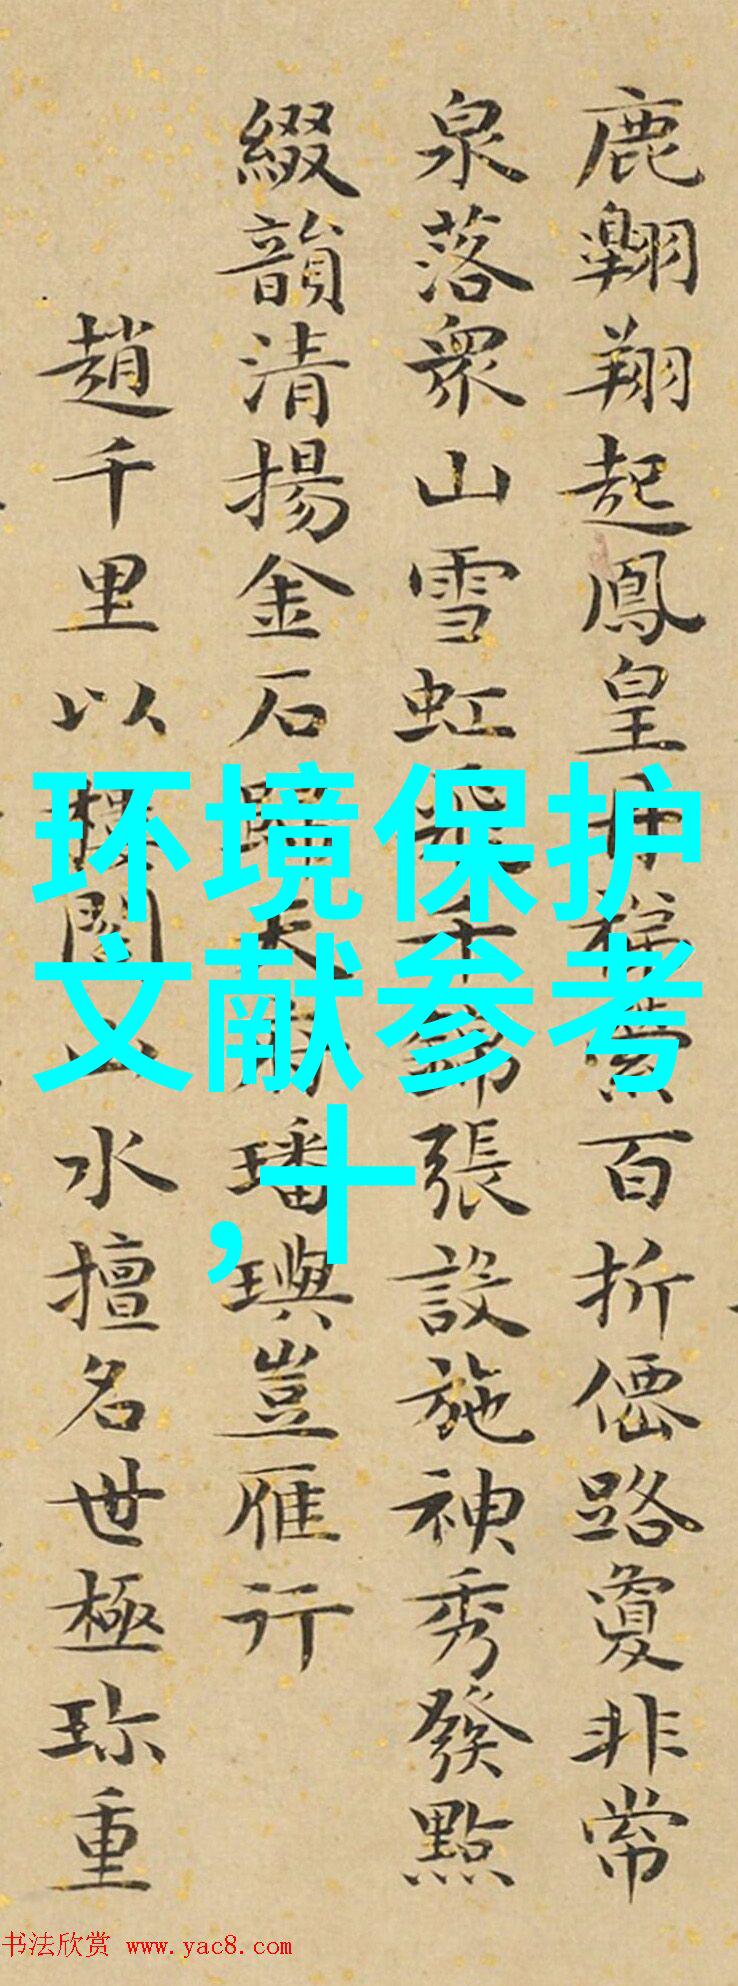 鹿翺翔起鳳皇丹百折僊路敻非常
泉落衆山雪虹飛千錦張設施神秀發點
綴韻清揚金石天璠璵豈雁行
趙千里以樓閣山水擅名世極珎重
环境保护
文献参考
,十
书法欣赏 www.yac8.com